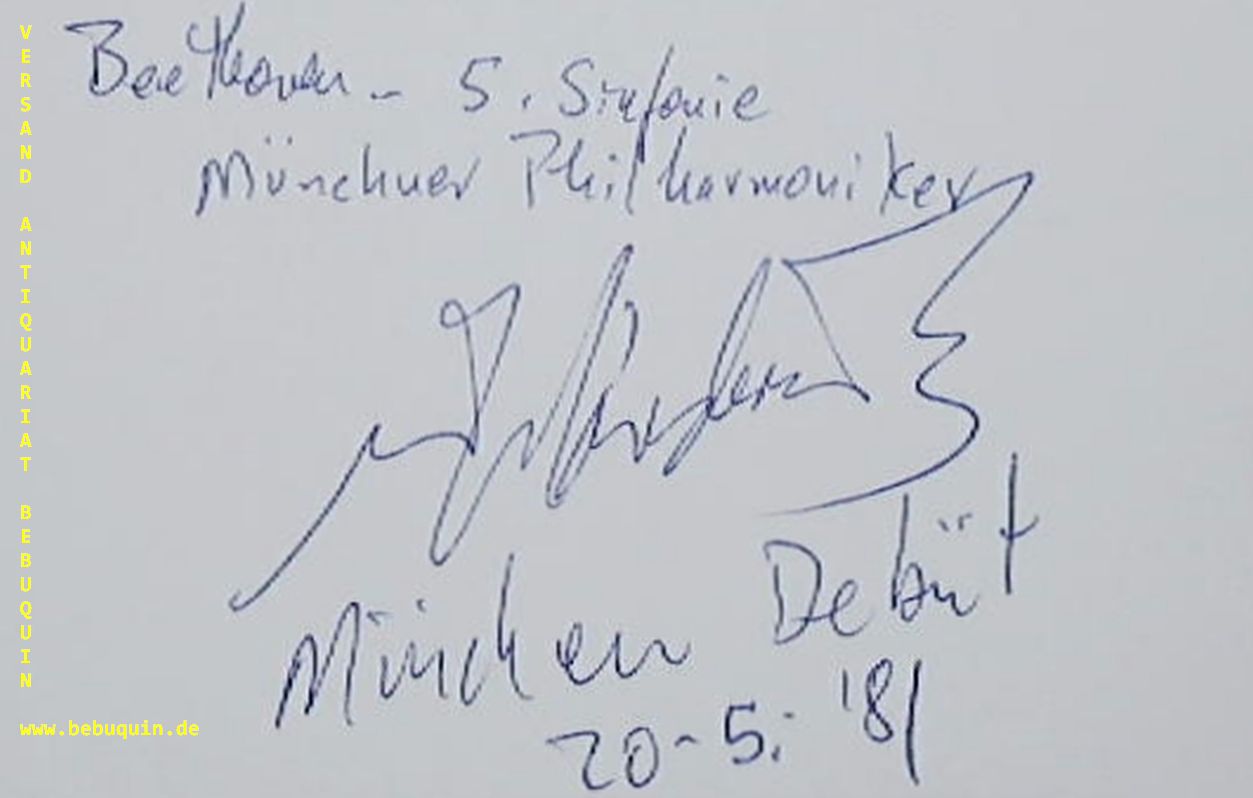 Beethoven - 5. Sinfonie
Münchner Philharmoniker
München Debüt
20-5. '81
VERSAND ANTIQUARIAT BEBUQUIN
www.bebuquin.de